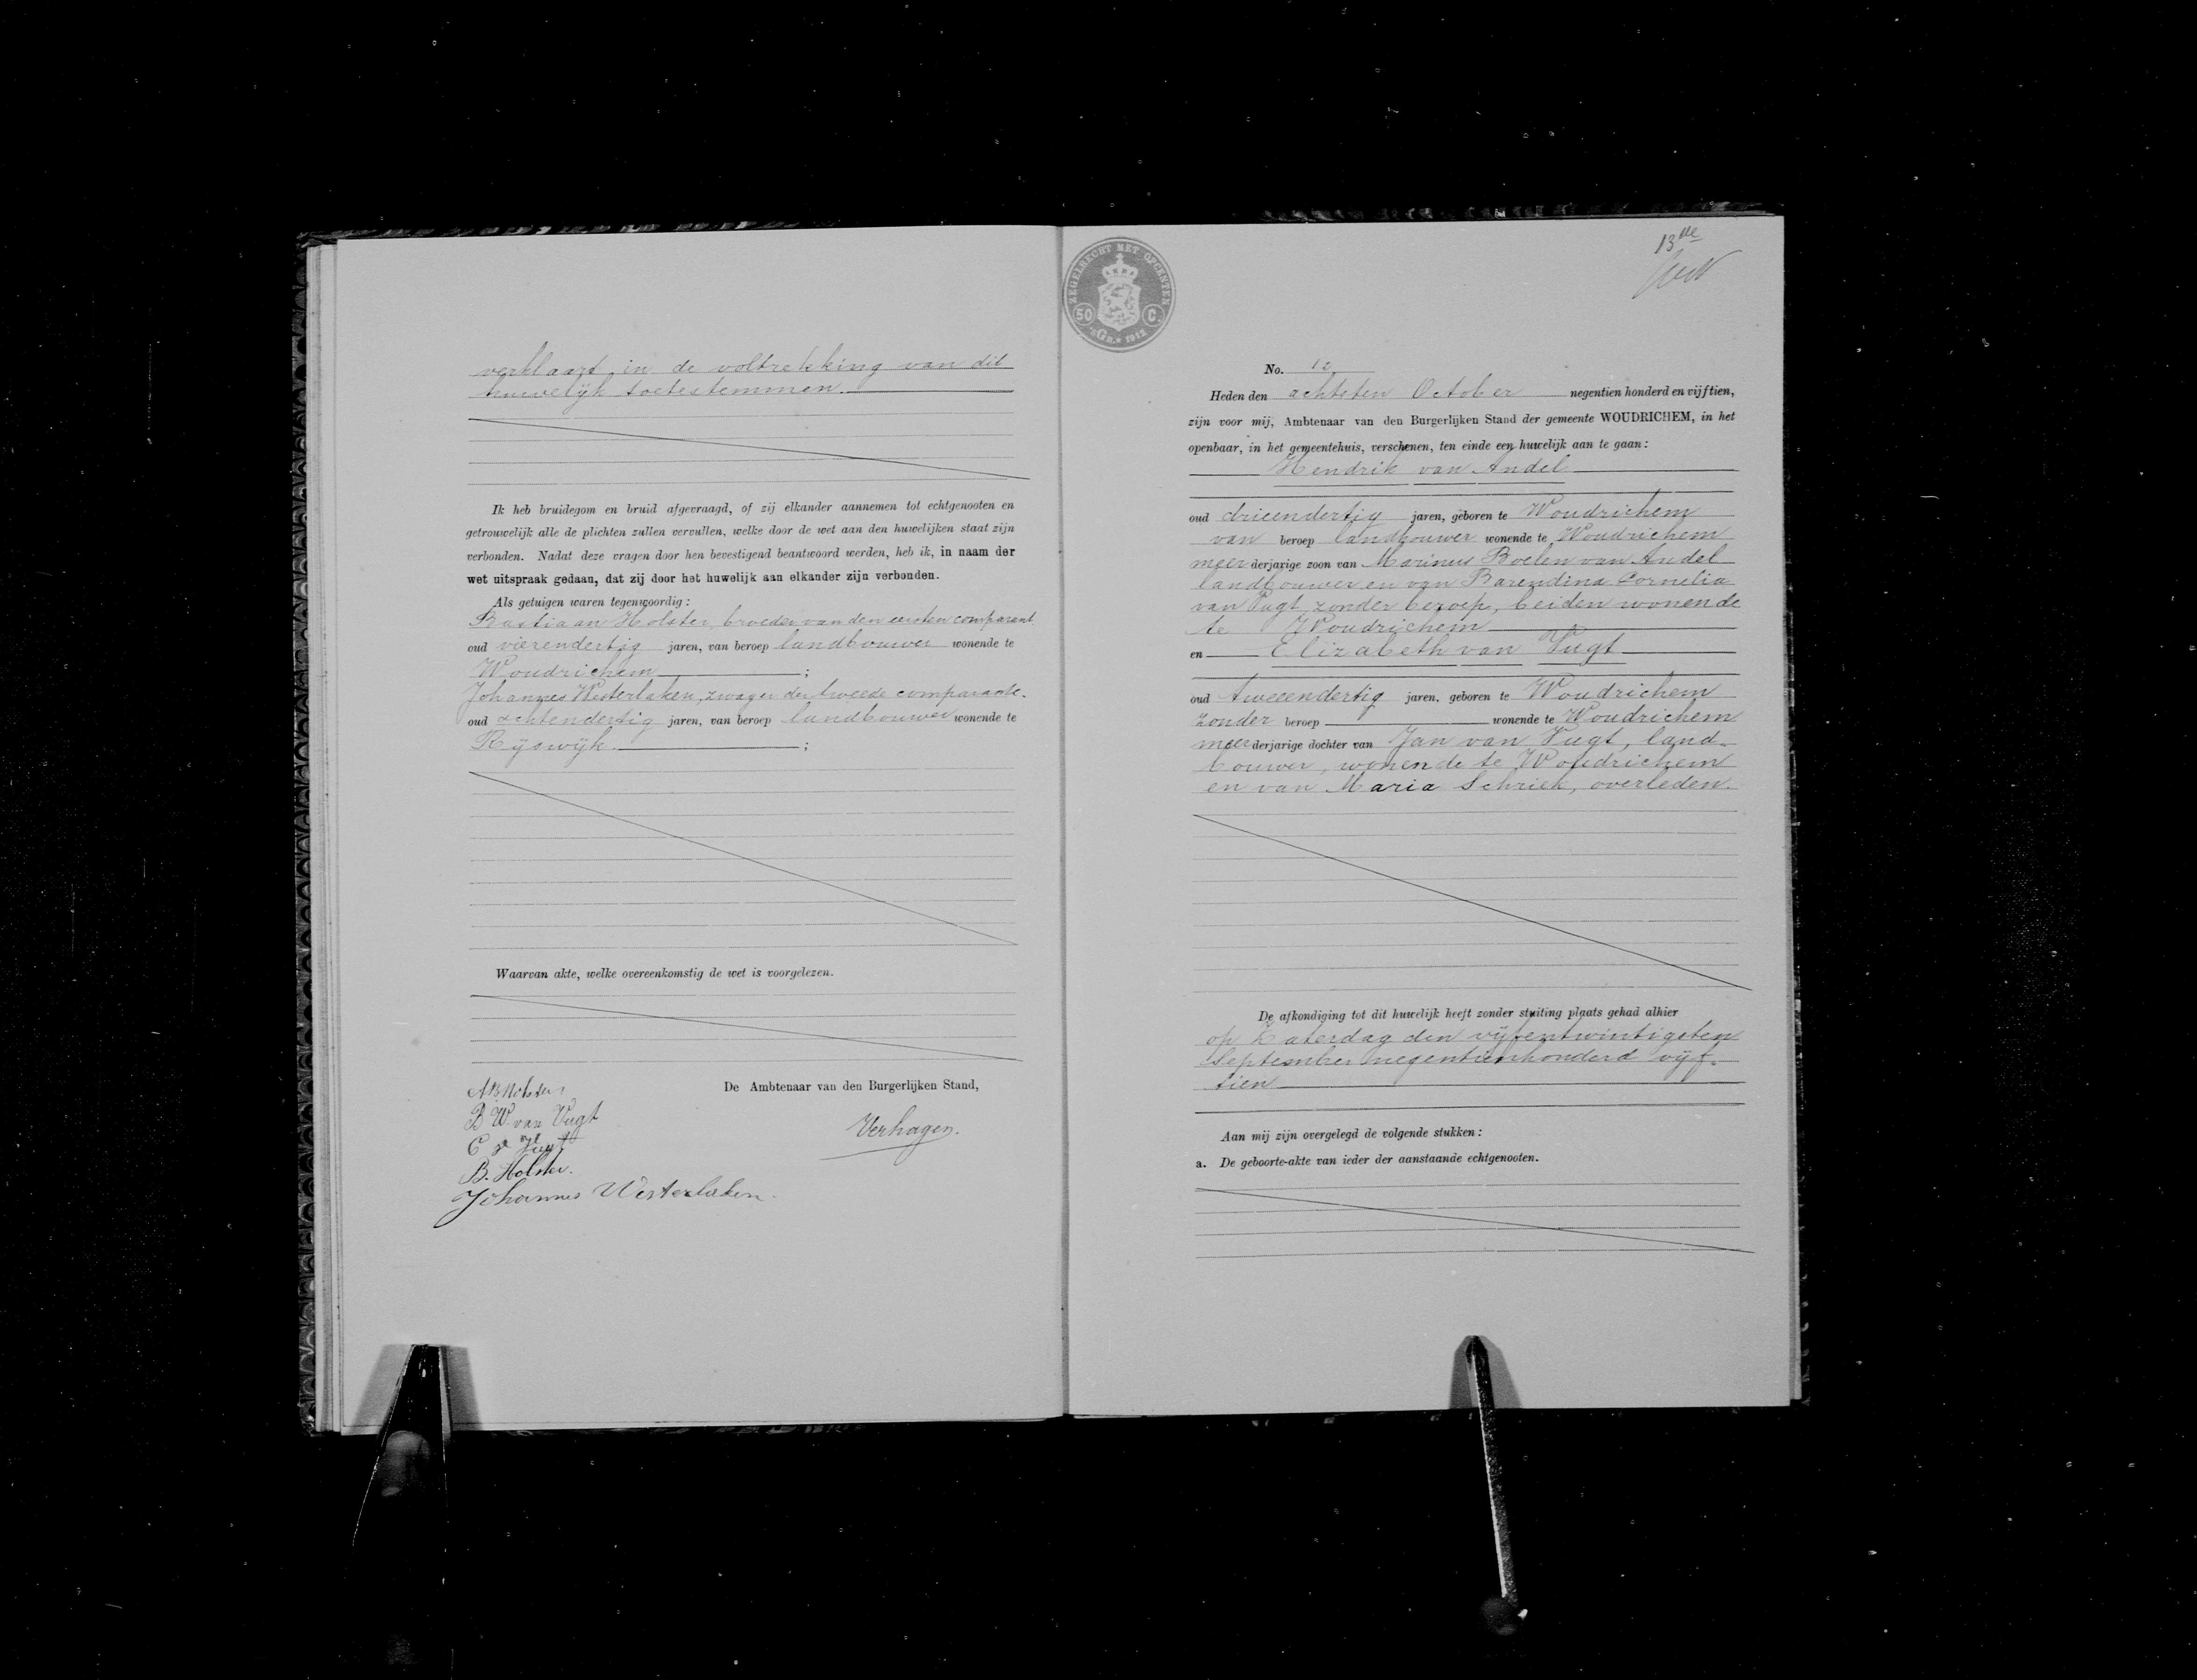 verklaard in de voltrekking van dit
huwelijk toetestemmen.
Ik heb bruidegom en bruid afgevraagd, of zij elkander aannemen tot echtgenooten en
getrouwelijk alle de plichten zullen vervullen, welke door de wet aan den huwelijken staat zijn
verbonden. Nadat deze vragen door hen bevestigend beantwoord werden, heb ik, in naam der
wet uitspraak gedaan, dat zij door het huwelijk aan elkander zijn verbonden.
Als getuigen waren tegenwoordig:
Bastiaan Holster, broeder van den eersten comparant
oud vierendertig jaren, van beroep landbouwer wonende te
Woudrichem ;
Johannes Westerlaken, zwager der tweede comparante.
oud achtendertig jaren, van beroep landbouwer wonende te
Rijswijk ;
Waarvan akte, welke overeenkomstig de wet is voorgelezen.
De Ambtenaar van den Burgerlijken Stand,
A B Holster
B W van Vugt
C v Vugt
B. Holster.
Johannes Westerlaken.
Verhagen.
ZEGELRECHT MET OPCENTEN
50 C.
1912
13de
No. 12
Heden den achtsten October negentien honderd en vijftien,
zijn voor mij, Ambtenaar van den Burgerlijken Stand der gemeente WOUDRICHEM, in het
openbaar, in het gemeentehuis, verschenen, ten einde een huwelijk aan te gaan:
Hendrik van Andel
oud drieendertig jaren, geboren te Woudrichem
van beroep landbouwer wonende te Woudrichem
meerderjarige zoon van Marinus Boelen van Andel
landbouwer en van Barendina Cornelia
van Vugt, zonder beroep, beiden wonende
te Woudrichem
en Elizabeth van Vugt
oud tweeendertig jaren, geboren te Woudrichem
zonder beroep wonende te Woudrichem
meerderjarige dochter van Jan van Vugt, land-
bouwer, wonende te Woudrichem
en van Maria Schriek, overleden.
De afkondiging tot dit huwelijk heeft zonder stuiting plaats gehad alhier
op Zaterdag den vijfentwintigsten
September negentienhonderd vijf-
tien
Aan mij zijn overgelegd de volgende stukken:
a. De geboorte-akte van ieder der aanstaande echtgenooten.